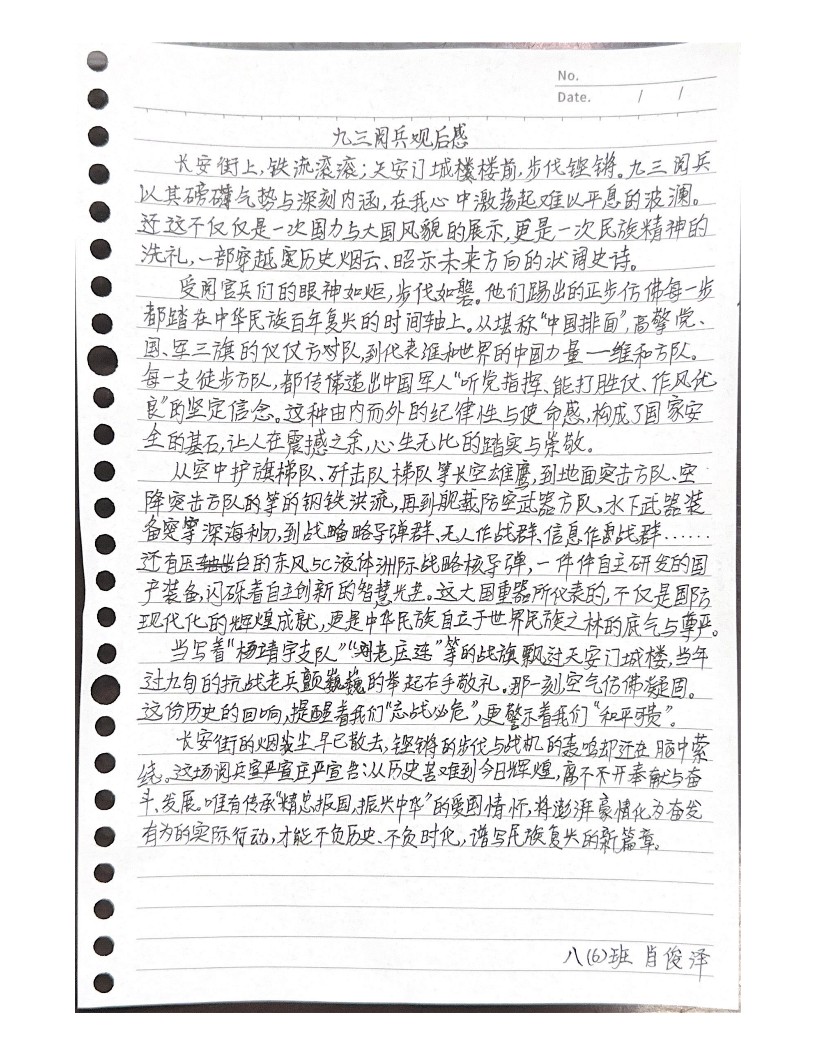 No.
Date. / /
九三阅兵观后感
长安街上,铁流滚滚;天安门城楼前,步伐铿锵。九三阅兵
以其磅礴气势与深刻内涵,在我心中激荡起难以平息的波澜。
这不仅仅是一次国力与大国风貌的展示,更是一次民族精神的
洗礼,一部穿越历史烟云、昭示未来方向的壮阔史诗。
受阅官兵们的眼神如炬,步伐如磐。他们踢出的正步仿佛每一步
都踏在中华民族百年复兴的时间轴上。从堪称“中国排面”,高擎党、
国、军三旗的仪仗方队,到代表维和世界的中国力量—维和方队。
每一支徒步方队,都传递出中国军人“听党指挥、能打胜仗、作风优
良”的坚定信念。这种由内而外的纪律性与使命感,构成了国家安
全的基石,让人在震撼之余,心生无比的踏实与崇敬。
从空中护旗梯队、歼击队梯队等长空雄鹰,到地面突击方队、空
降突击方队的等的钢铁洪流,再到舰载防空武器方队、水下武器装
备等深海利刃,到战略导弹群、无人作战群、信息作战群……
还有压台的东风5C液体洲际战略核导弹,一件件自主研发的国
产装备,闪砾着自立创新的智慧光芒。这大国重器所代表的,不仅是国防
现代化的辉煌成就,更是中华民族自立于世界民族之林的底气与尊严。
当写着“杨靖宇支队”“刘老庄连”等的战旗飘过天安门城楼,当年
过九旬的抗战老兵颤巍巍的举起右手敬礼。那一刻空气仿佛凝固。
这份历史的回响,提醒着我们“忘战必危”,更警示着我们“和平可贵”。
长安街的烟尘早已散去,铿锵的步伐与战机的轰鸣却还在脑中萦
绕。这场阅兵庄严宣告:从历史苦难到今日辉煌,离不开奉献与奋
斗、发展。唯有传承“精忠报国,振兴中华”的爱国情怀,将澎湃豪情化为奋发
有为的实际行动,才能不负历史、不负时代,谱写民族复兴的新篇章。
八(6)班 肖俊泽